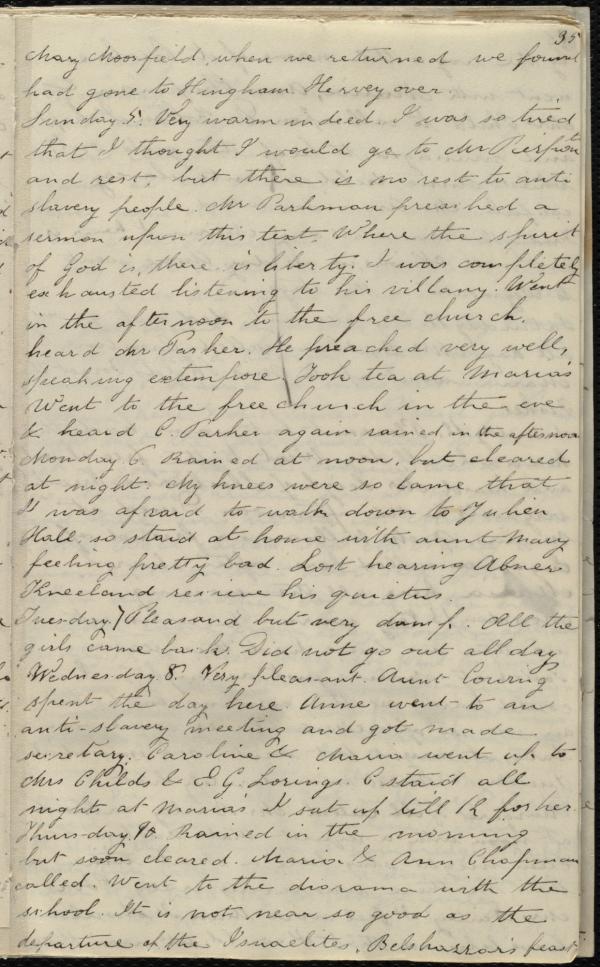 35
Mary Moorfield, when we returned we found
had gone to Hingham Hervey over.
Sunday 5. Very warm indeed. I was so tired
that I thought I would go to Mr Pierpon
and rest, but there is no rest to anti
slavery people. Mr Parkman preached a
sermon upon this text, Where the spirit
of God is, there is liberty. I was completely
exhausted listening to his villany. Went
in the afternoon to the free church.
heard Mr Parker. He preached very well,
speaking extempore. Took tea at Marias
Went to the free church in the eve
& heard C. Parker again rained in the afternoon
Monday 6 Rained at noon, but cleared
at night. My knees were so lame that
I was afraid to walk down to Julien
Hall, so staid at home with aunt Mary
feeling pretty bad. Lost hearing Abner
Kneeland recieve his quietus.
Tuesday 7 Pleasand but very damp. All the
girls came back. Did not go out all day
Wednesday 8. Very pleasant. Aunt Coving
spent the day here. Anne went to an
anti-slavery meeting and got made
secretary. Caroline & Maria went up to
Mrs Childs & E. G. Lorings. C staid all
night at Marias I sat up till 12 for her.
Thursday 9. Rained in the morning
but soon cleared. Maria & Ann Chapman
called. Went to the diorama with the
school. It is not near so good as the
departure of the Isnaelites. Belshazzar's feast